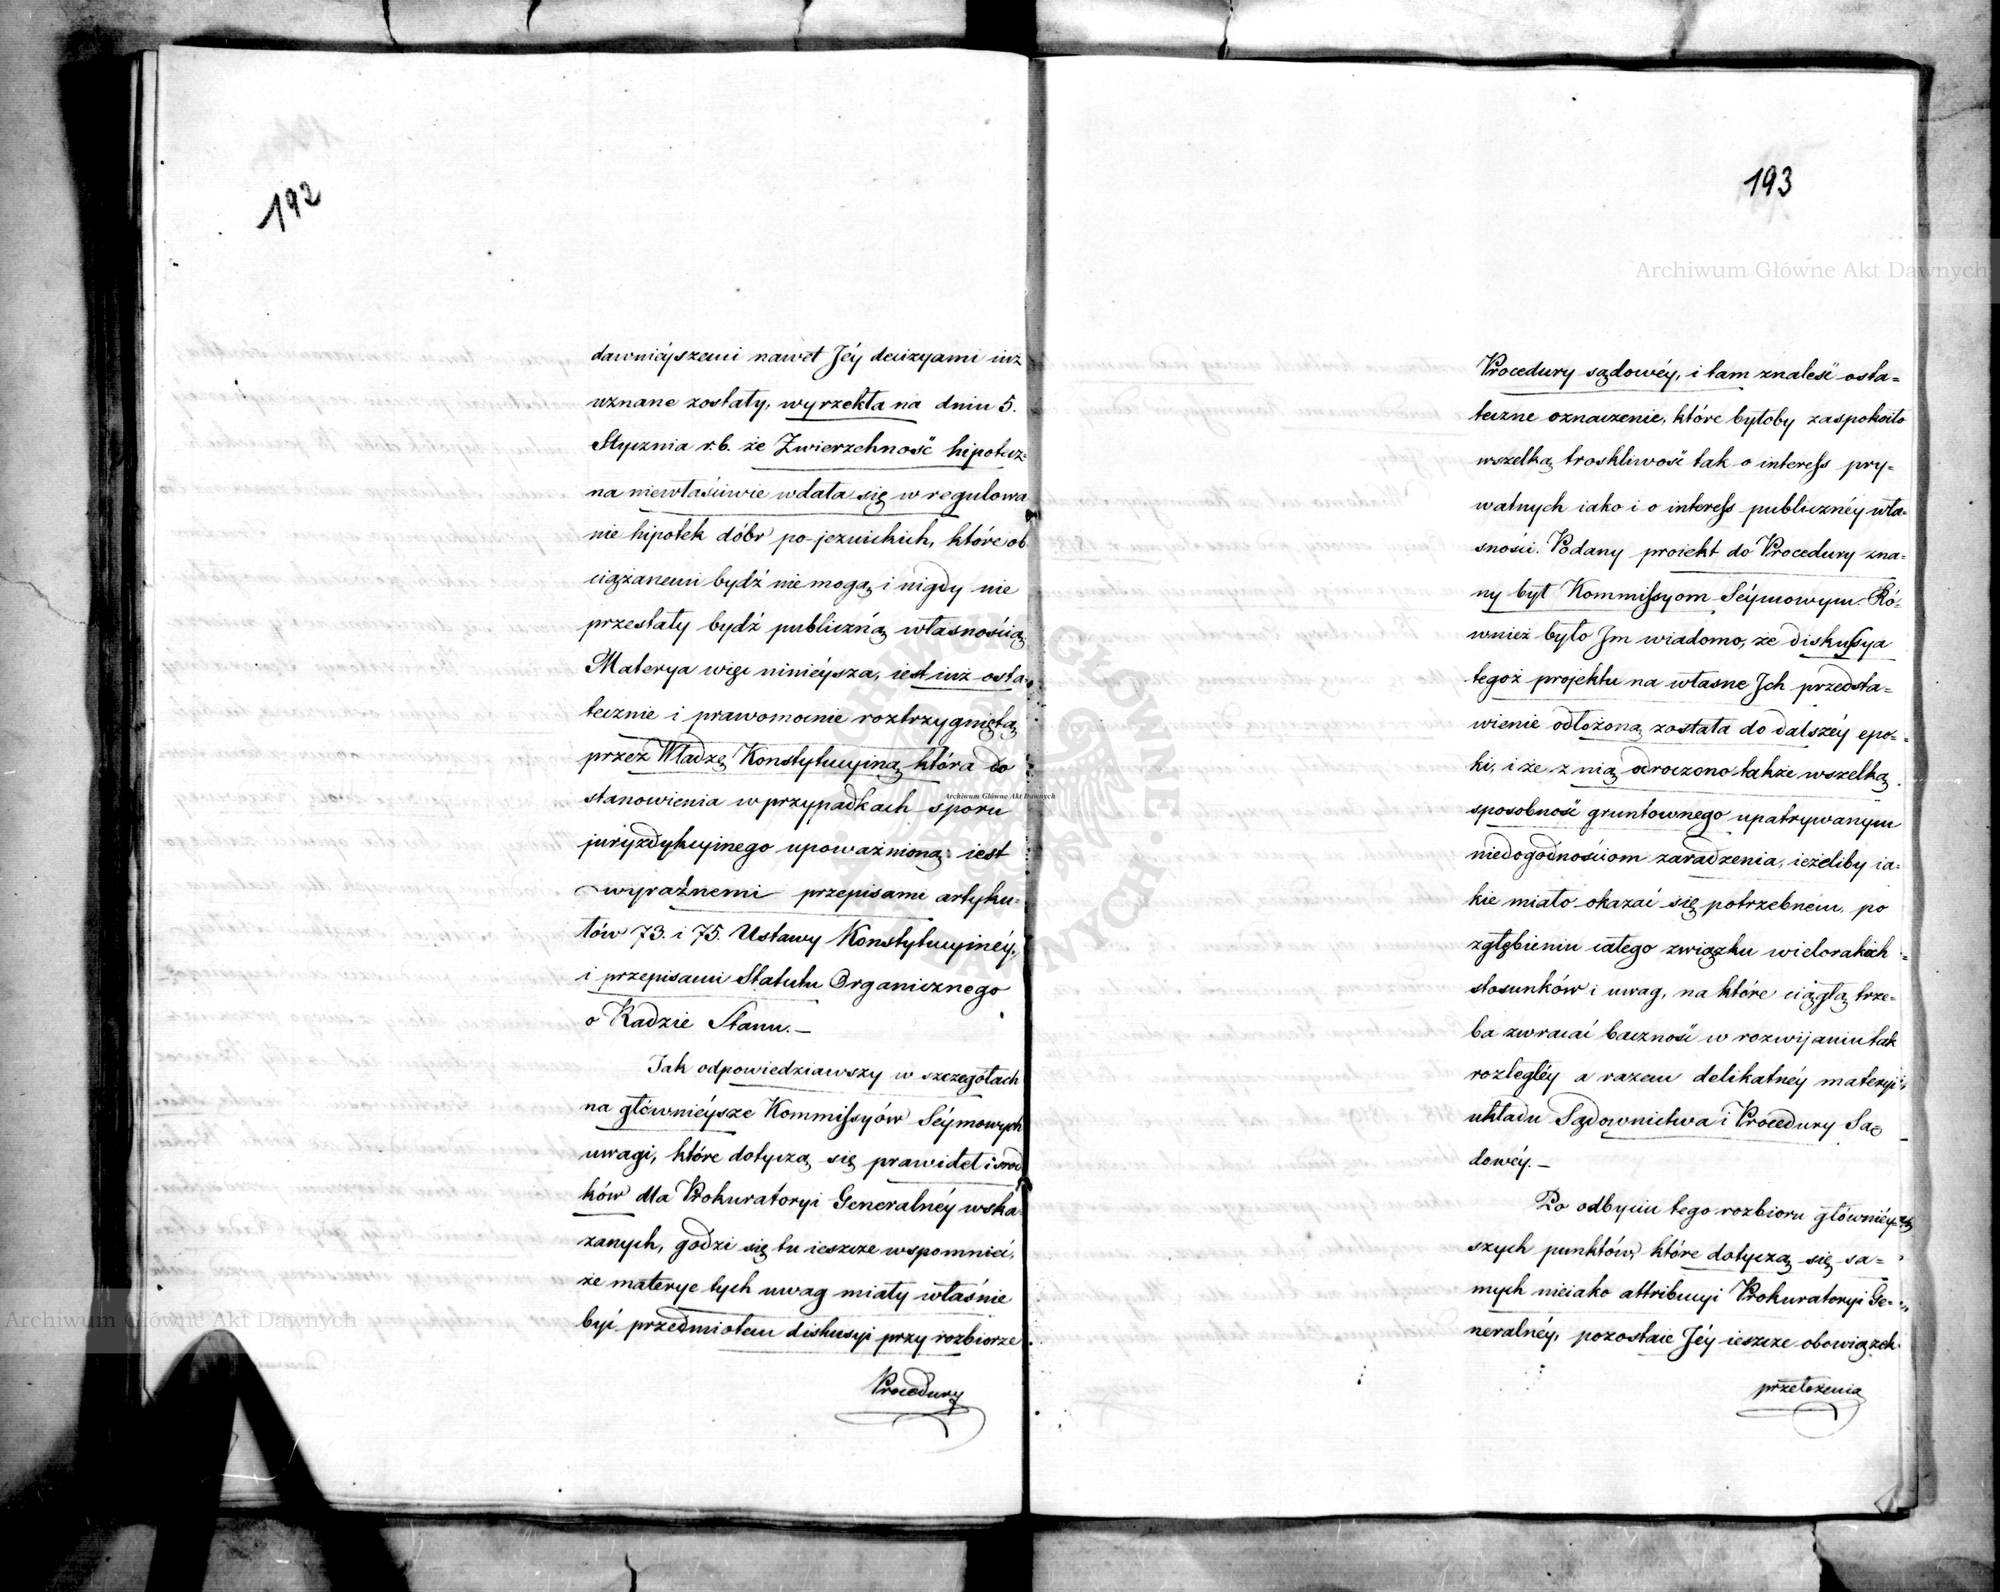 192
dawniéyszemi nawet Jéy decizyami iuż
uznane zostały, wyrzekła na dniu 5.
Stycznia r.b. że Zwierzchność hipotecz=
na niewłaściwie wdała się w regulowa
nie hipotek dóbr po-jezuickich, które ob
ciążanemi bydź nie mogą i nigdy nie
przestały bydź publiczną własnością
Materya więc ninieysza, iest iuż osta=
tecznie i prawomocnie roztrzygniętą
przez Władzę Konstytucyiną która do
stanowienia w przypadkach sporu
juryzdykcyinego upoważnioną iest
wyraźnemi przepisami artyku=
łów 73. i 75. Ustawy Konstytucyinéy,
i przepisami Statutu Organicznego
o Radzie Stanu.—
Tak odpowiedziawszy w szczegółach
na główniéysze Kommissyów Séymowych
uwagi, które dotyczą się prawideł i środ
ków dla Prokuratoryi Generalnéy wska
zanych, godzi się tu ieszcze wspomnieć,
że materye tych uwag miały właśnie
być przedmiotem diskusyi przy rozbiorze
Procedury
193
Procedury sądowéy, i tam znaleść osta=
teczne oznaczenie, które byłoby zaspokoiło
wszelką troskliwość tak o interess pry=
watnych iako i o interess publicznéy wła=
sności. Podany proiekt do Procedury zna=
ny był Kommissyom Séymowym. Ró=
wnież było Jm wiadomo, że diskussya
tegoż projektu na własne Jch przedsta=
wienie odłożoną została do dalszéy epo=
ki, i że z nią odroczono także wszelką
sposobność gruntownego upatrywanym
niedogodnościom zaradzenia, ieżeliby ia=
kie miało okazać się potrzebnem, po
zgłębieniu całego związku wielorakich
stosunków i uwag, na które ciągłą trze=
ba zwracać baczność w rozwijaniu tak
rozległéy a razem delikatnéy materyi
układu Sądownictwa i Procedury Są=
dowéy.—
Po odbyciu tego rozbioru główniéy=
szych punktów, które dotyczą się sa=
mych nieiako attribucyi Prokuratoryi Ge=
neralnéy, pozostaie Jéy ieszcze obowiązek
przełożenia
Archiwum Główne Akt Dawnych
Archiwum Główne Akt Dawnych
Archiwum Główne Akt Dawnych